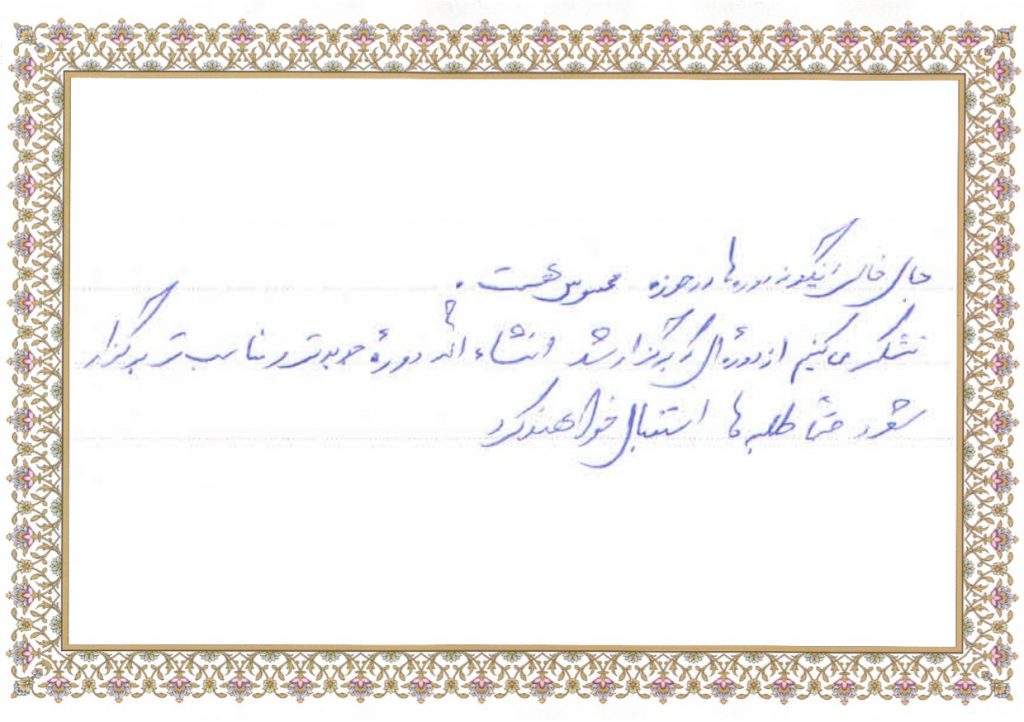 جای خالی اینگونه دوره ها در حوزه محسوس هست .
تشکر می کنیم از دوره ای که برگزار شد انشاء الله دورهٔ خوبتر و مناسب تر برگزار
شود حتماً طلبه ها استقبال خواهند کرد